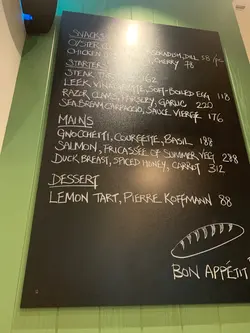 SNACKS
OYSTER
CHICKEN HORSERADISH, DILL 58/pc
CHERRY 78
STARTERS
STEAK 162
LEEK VINAIGRETTE, SOFT-BOILED EGG 118
RAZOR CLAMS, PARSLEY, GARLIC 220
SEA BREAM CARPACCIO, SAUCE VIERGE 176
MAINS
GNOCCHETTI, COURGETTE, BASIL 188
SALMON, FRICASSÉE OF SUMMER VEG 238
DUCK BREAST, SPICED HONEY, CARROT 312
DESSERT
LEMON TART, PIERRE KOFFMANN 88
BON APPÉTIT